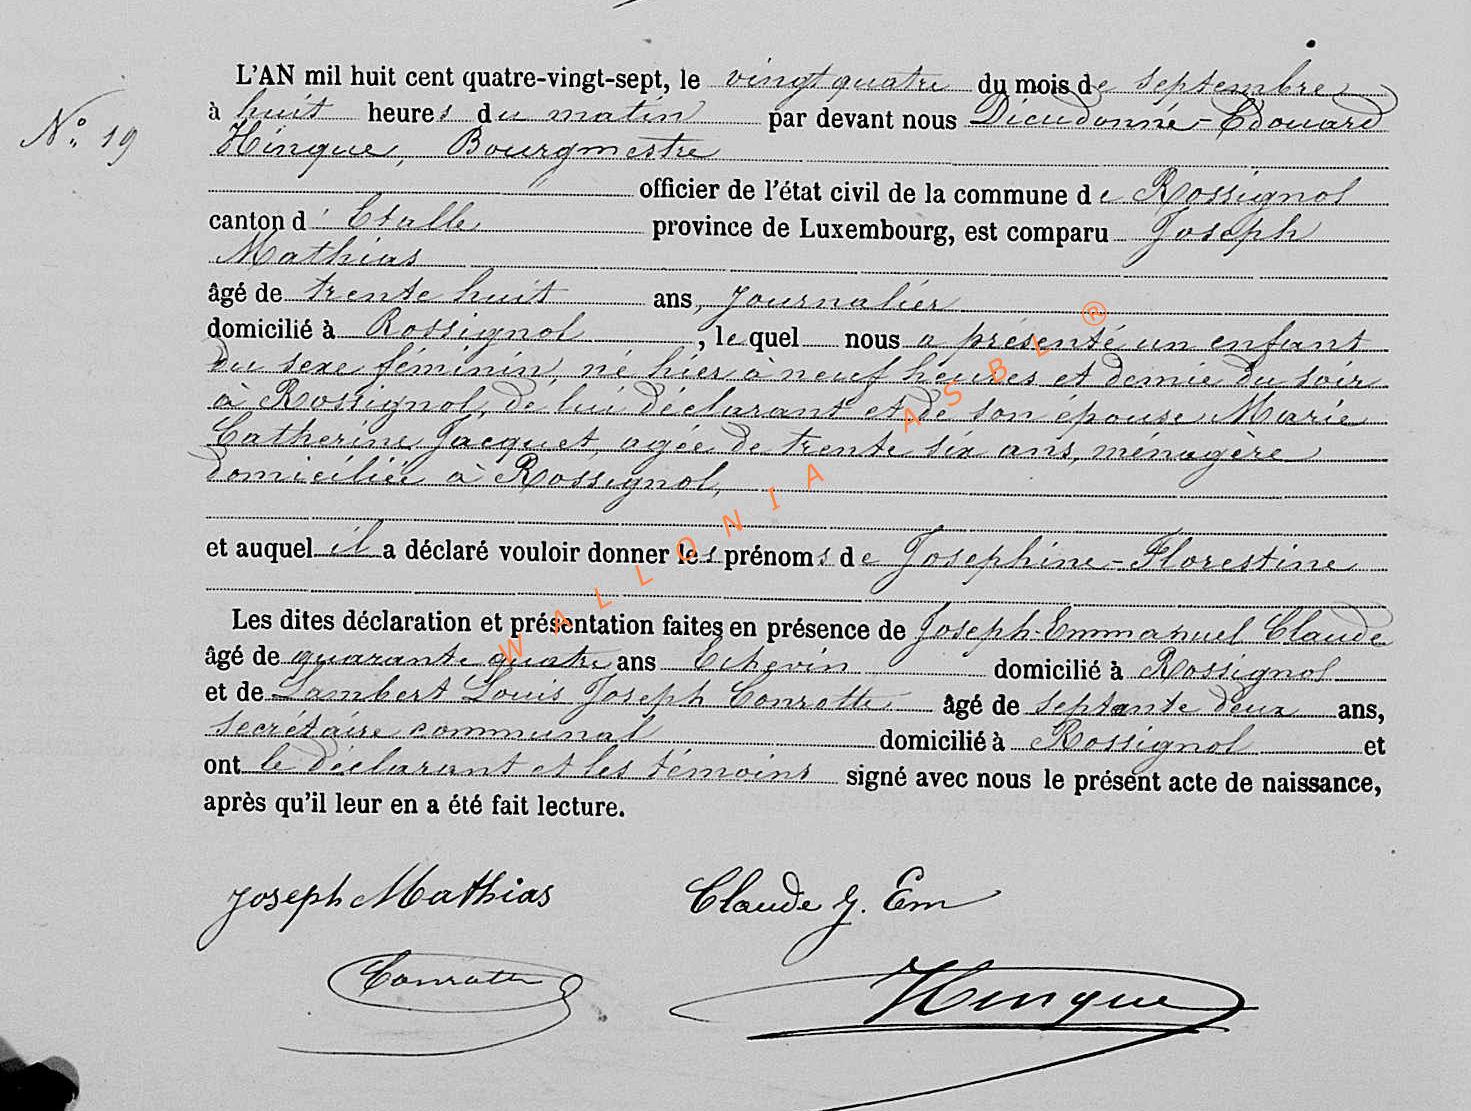 L'AN mil huit cent quatre-vingt-sept, le vingt quatre du mois de septembre
N° 19
à huit heures du matin par devant nous Dieudonné-Edouard
Hinque, Bourgmestre
officier de l'état civil de la commune de Rossignol
canton d'Etalle province de Luxembourg, est comparu Joseph
Mathias
âgé de trente huit ans, journalier
domicilié à Rossignol, lequel nous a présenté un enfant
du sexe féminin, né hier à neuf heures et demie du soir
à Rossignol, de lui déclarant et de son épouse Marie
Catherine Jacquet, agée de trente six ans, ménagère
domiciliée à Rossignol,
et auquel il a déclaré vouloir donner les prénoms de Josephine-Florestine
Les dites déclaration et présentation faites en présence de Joseph-Emmanuel Claude
âgé de quarante quatre ans Echevin domicilié à Rossignol
et de Lambert Louis Joseph Conrotte âgé de septante deux ans,
secrétaire communal domicilié à Rossignol et
ont le déclarant et les témoins signé avec nous le présent acte de naissance,
après qu'il leur en a été fait lecture.
Joseph Mathias Claude J. Em
Conrotte Hinque
WALLONIA ASBL ®